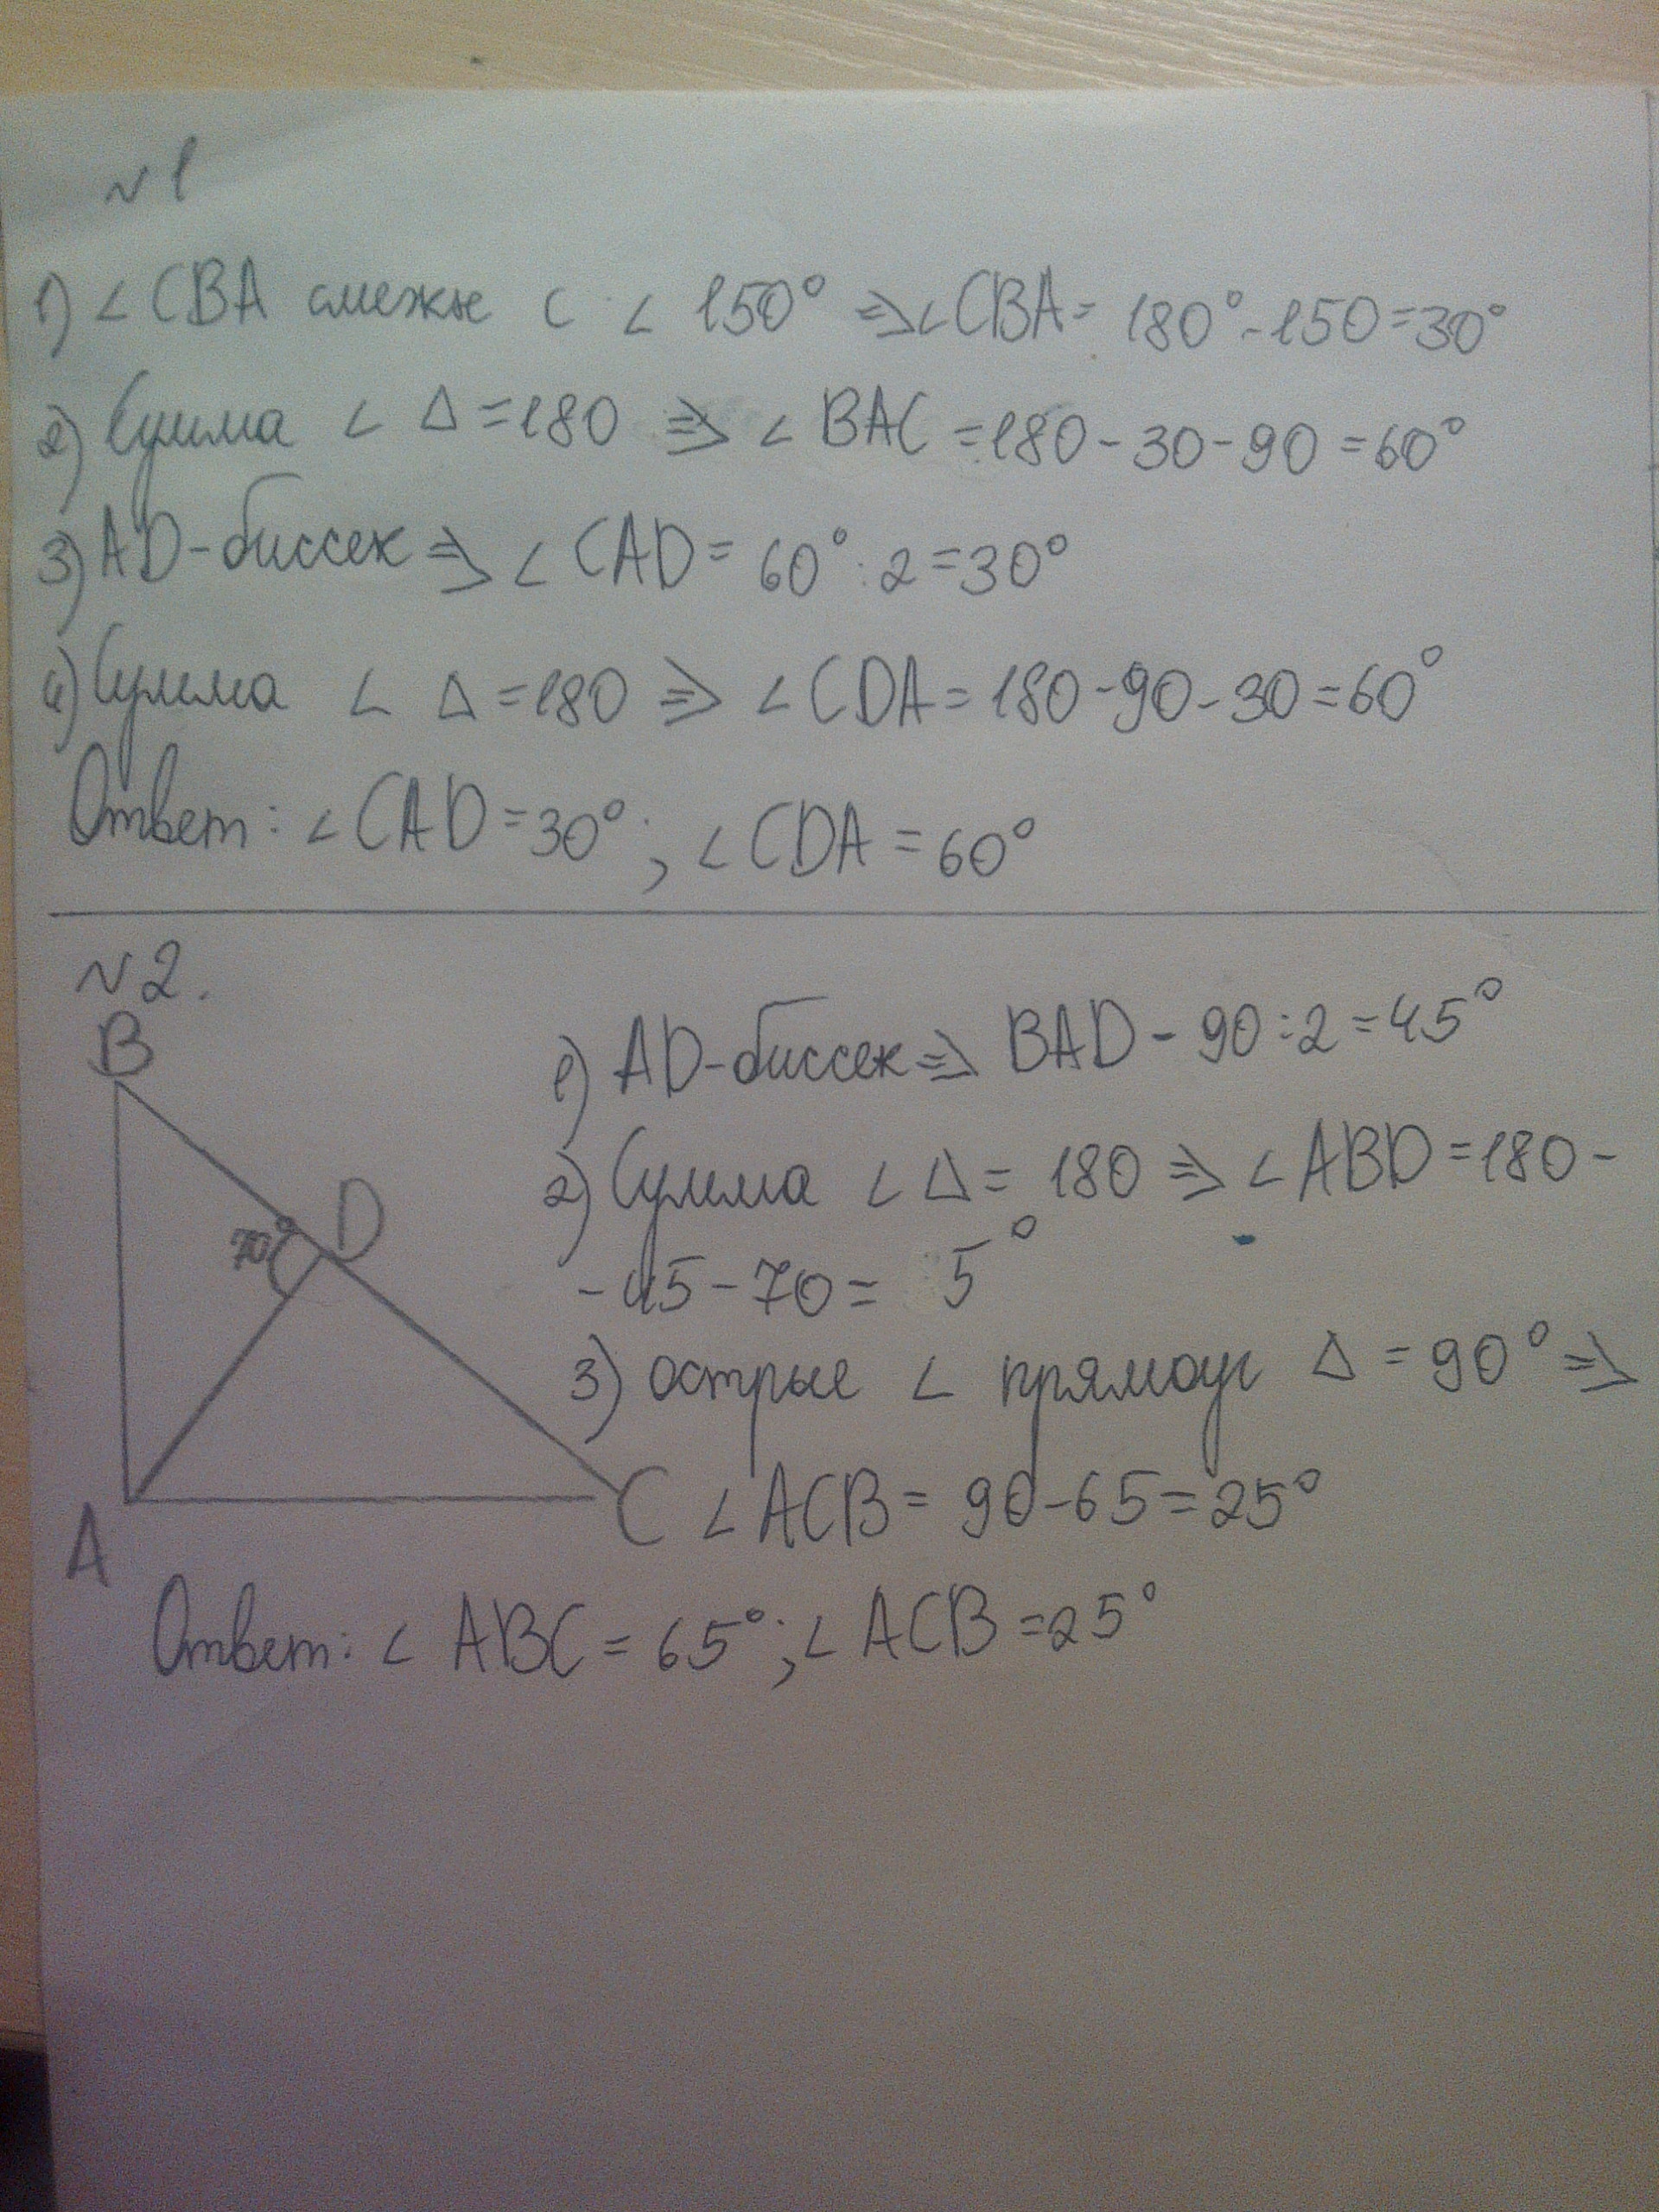 №1
1) ∠ CBA смежн с ∠ 150° ⇒ ∠CBA = 180° - 150 = 30°
2) Сумма ∠ Δ = 180 ⇒ ∠ BAC = 180 - 30 - 90 = 60°
3) AD - биссек ⇒ ∠ CAD = 60° : 2 = 30°
4) Сумма ∠ Δ = 180 ⇒ ∠ CDA = 180 - 90 - 30 = 60°
Ответ: ∠ CAD = 30°; ∠ CDA = 60°
№2.
B
D
70°
A
C
1) AD - биссек ⇒ BAD - 90 : 2 = 45°
2) Сумма ∠ Δ = 180 ⇒ ∠ ABD = 180 -
- 45 - 70 = 5°
3) острые ∠ прямоуг Δ = 90° ⇒
∠ ACB = 90 - 65 = 25°
Ответ: ∠ ABC = 65°; ∠ ACB = 25°